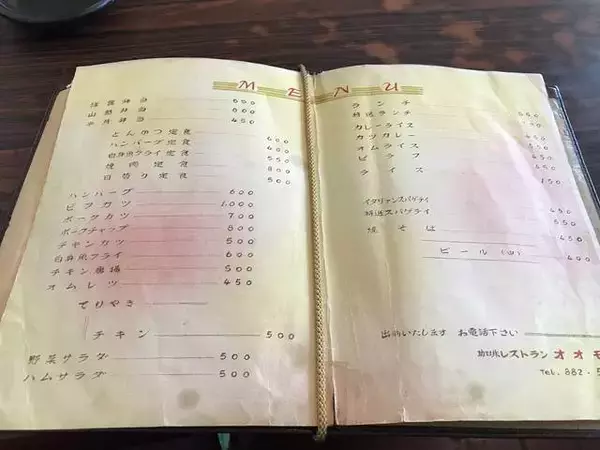 MENU
弁当 600
山菜弁当 500
半月弁当 450
とんかつ定食
ハンバーグ定食 400
白身魚フライ定食 400
焼肉定食 550
日替り定食 800
500
ハンバーグ 600
ビフカツ 1,000
ポークカツ 700
ポークチャップ 800
チキンカツ 500
白身魚フライ 600
チキン 500
オムレツ 450
てりやき
チキン 500
野菜サラダ 500
ハムサラダ 500
ランチ
特選ランチ
カレーライス
カツカレー
オムライス
ピラフ
ライス
150
イタリアンスパゲティ 450
特選スパゲティ 550
焼そば 450
ビール(中) 400
出前いたします お電話下さい
レストラン オオモ
TEL. 882-5